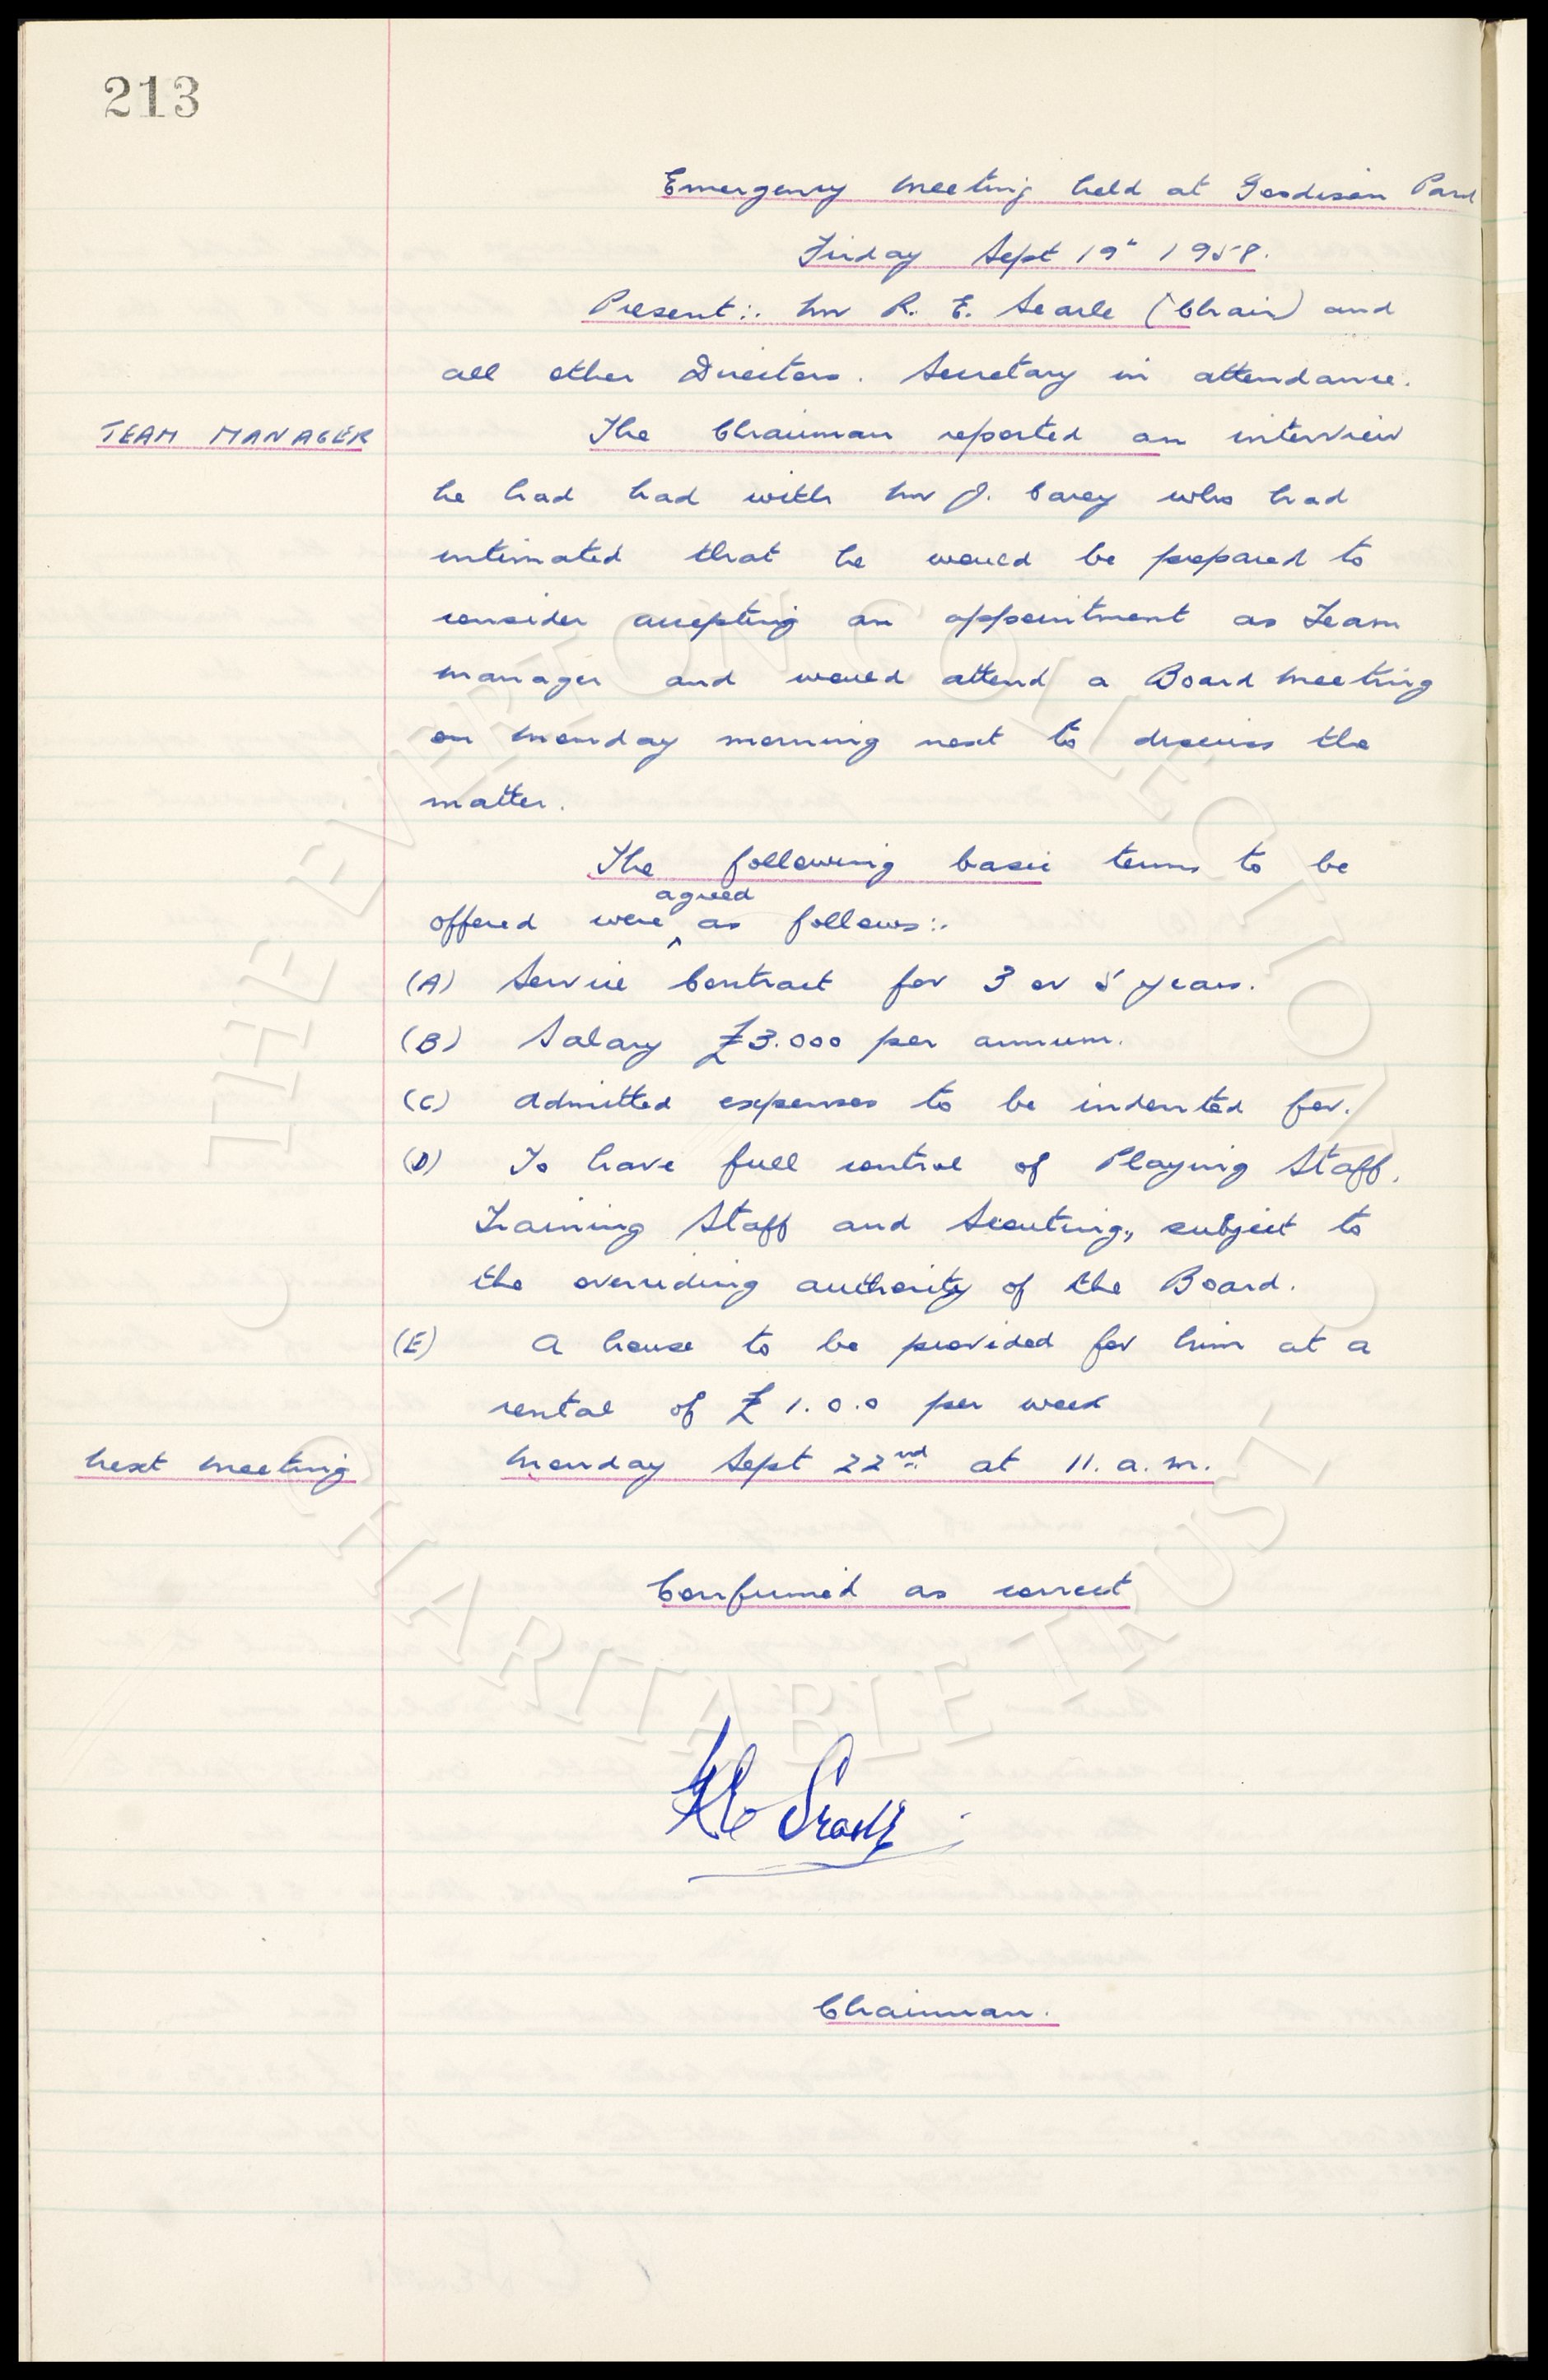 213
Emergency Meeting held at Goodison Park
Friday Sept 19th 1958.
Present:. Mr R. E. Searle (Chair) and
all other Directors. Secretary in attendance.
TEAM MANAGER The Chairman reported an interview
he had had with Mr J. Carey who had
intimated that he would be prepared to
consider accepting an appointment as Team
Manager and would attend a Board Meeting
on Monday morning next to discuss the
matter.
The following basic terms to be
offered were agreed as follows:.
(A) Service Contract for 3 or 5 years.
(B) Salary £3.000 per annum.
(C) Admitted expenses to be indented for.
(D) To have full control of Playing Staff,
Training Staff and Scouting, subject to
the overriding authority of the Board.
(E) A house to be provided for him at a
rental of £1.0.0 per week
Next Meeting Monday Sept 22nd at 11.a.m.
Confirmed as correct
R E Searle
Chairman.
THE EVERTON COLLECTION
CHARITABLE TRUST